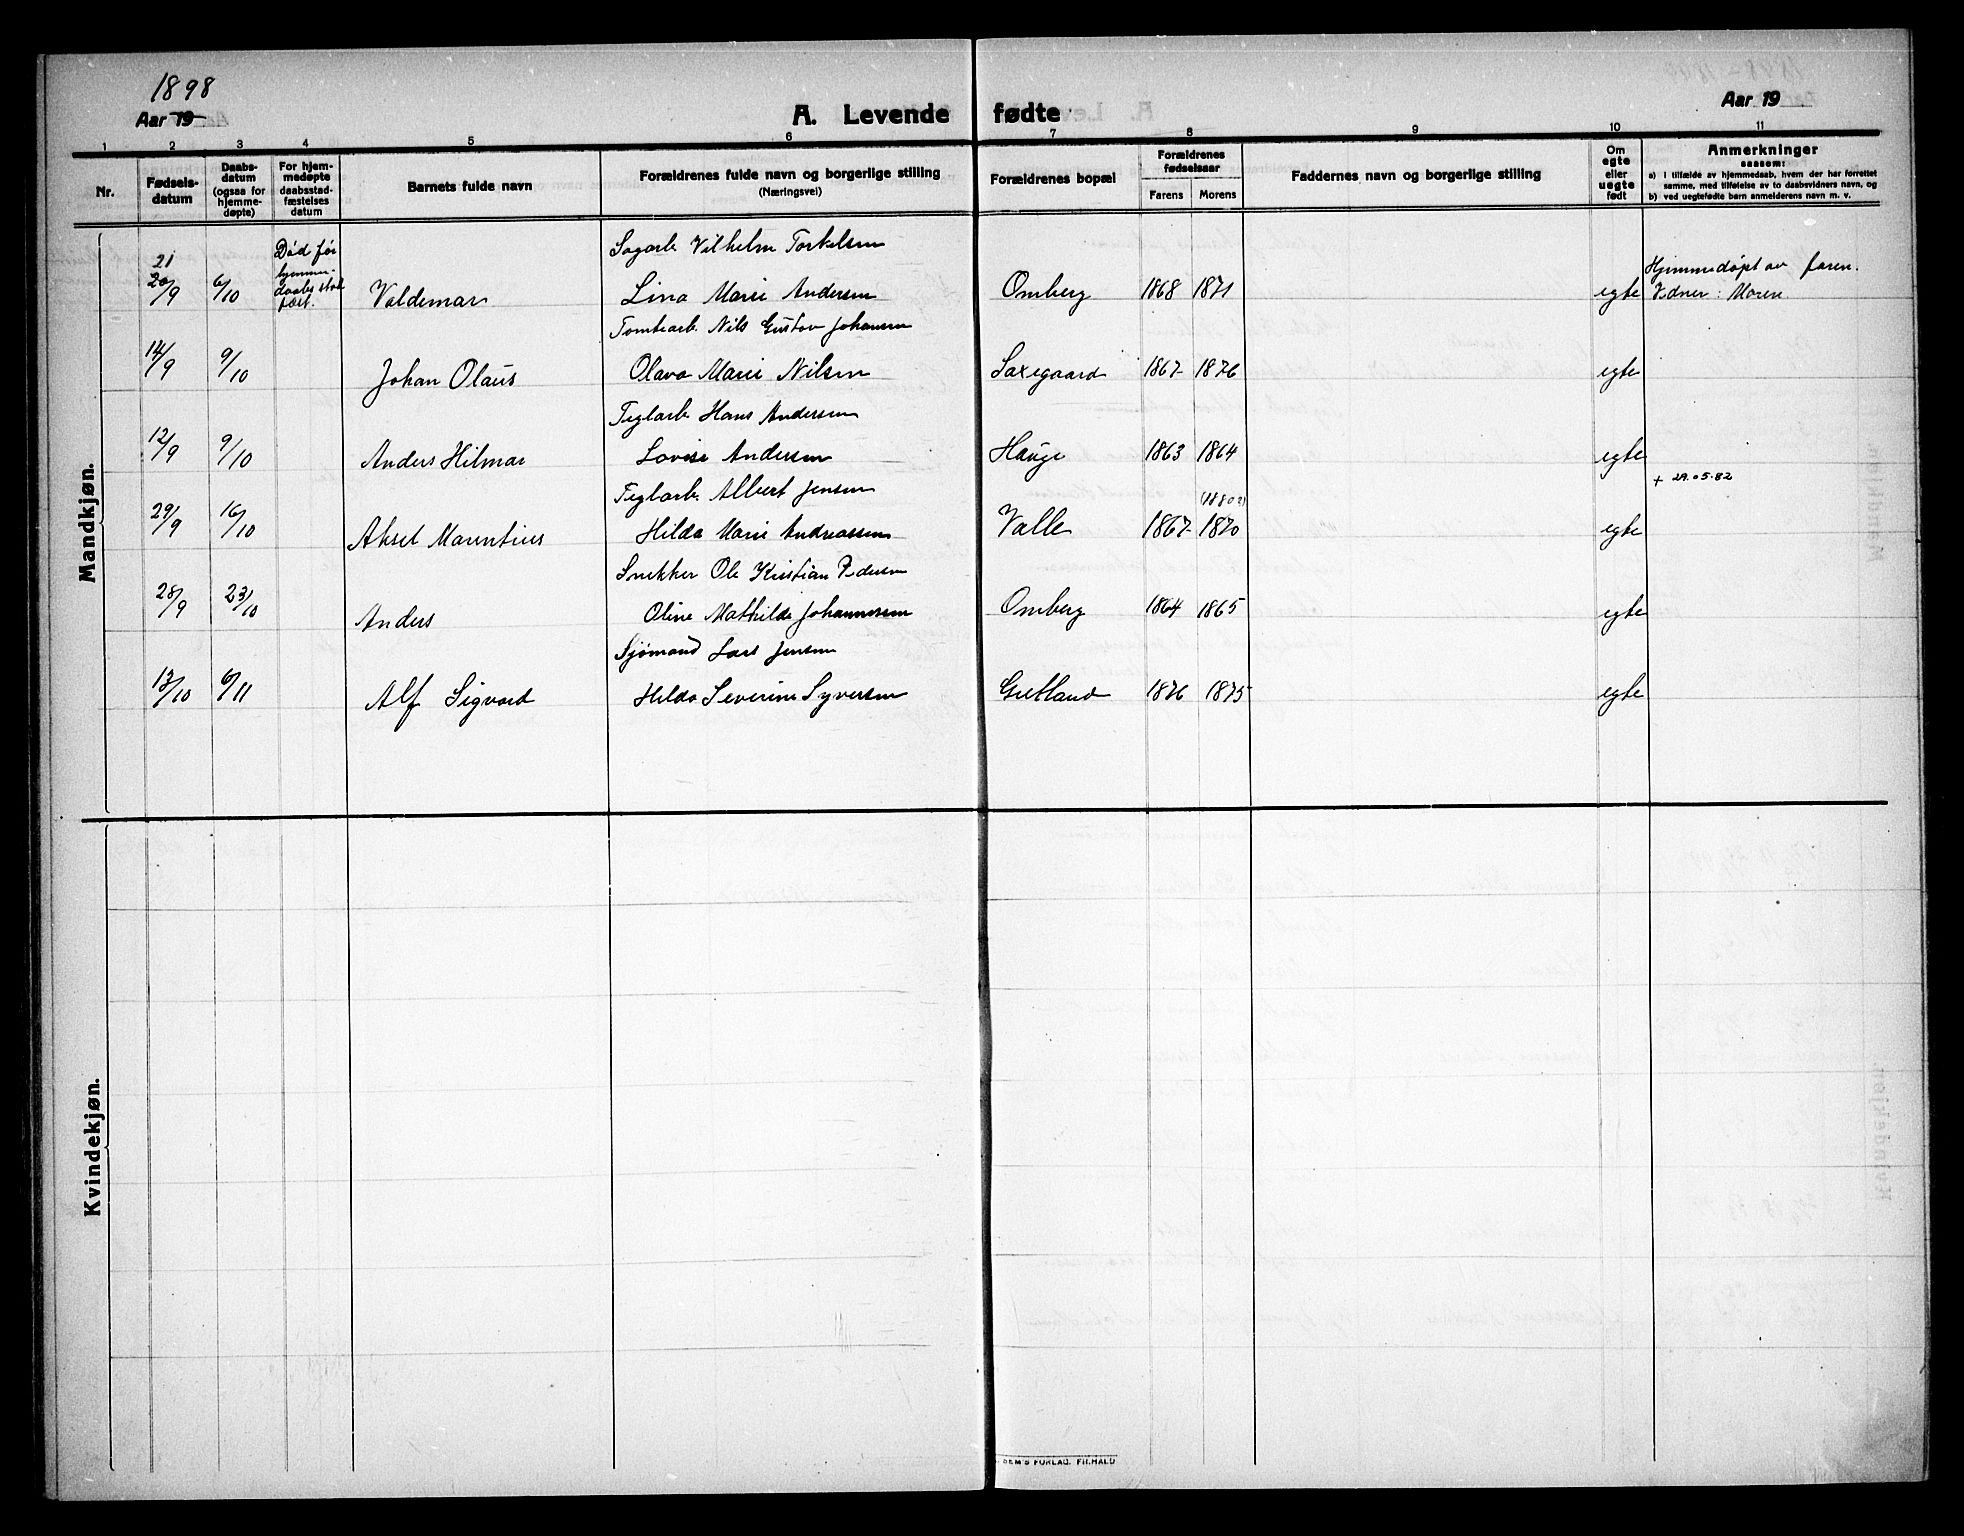 1898
Aar 19
A. Levende fødte
Aar 19
1 2 3 4 5 6 7 8 9 10 11
Nr.
Fødsels-
datum
Daabs-
datum
(ogsaa for
hjemme-
døpte)
For hjem-
medøpte
daabsstad-
fæstelses
datum
Barnets fulde navn
Forældrenes fulde navn og borgerlige stilling
(Næringsvei)
Forældrenes bopæl
Forældrenes
fødselsaar
Farens Morens
Faddernes navn og borgerlige stilling
Om
egte
eller
uegte
født
Anmerkninger
saasom:
a) i tilfælde av hjemmedaab, hvem der har forrettet
samme, med tilføielse av to daabsvidners navn, og
b) ved uegtefødte barn anmelderens navn m. v.
Mandkjøn.
Sagarb. Vilhelm Torkelsen
21
20/9 6/10 Død før
hjemme-
daabs stad-
fæst.
Valdemar Lina Marie Andersen Omberg 1868 1871 egte
Hjemmedøpt av faren.
Vidner: Moren
Tomtearb. Nils Gustav Johansen
14/9 9/10 Johan Olaus Olava Marie Nilsen Saxegaard 1867 1876 egte
Teglarb. Hans Andersen
12/9 9/10 Anders Hilmar Lovise Andersen Hauge 1863 1864 egte
+ 29.05.82
Teglarb. Albert Jensen
(1880?)
29/9 16/10 Aksel Marentius Hilda Marie Andreassen Valle 1867 1870 egte
Snekker Ole Kristian Pedersen
28/9 23/10 Anders Oline Mathilde Johannessen Omberg 1864 1865 egte
Sjømand Lars Jensen
13/10 6/11 Alf Sigvard Hilda Severine Syversen Gretland 1876 1875 egte
Kvindekjøn.
DEM'S FORLAG. FR.HALD